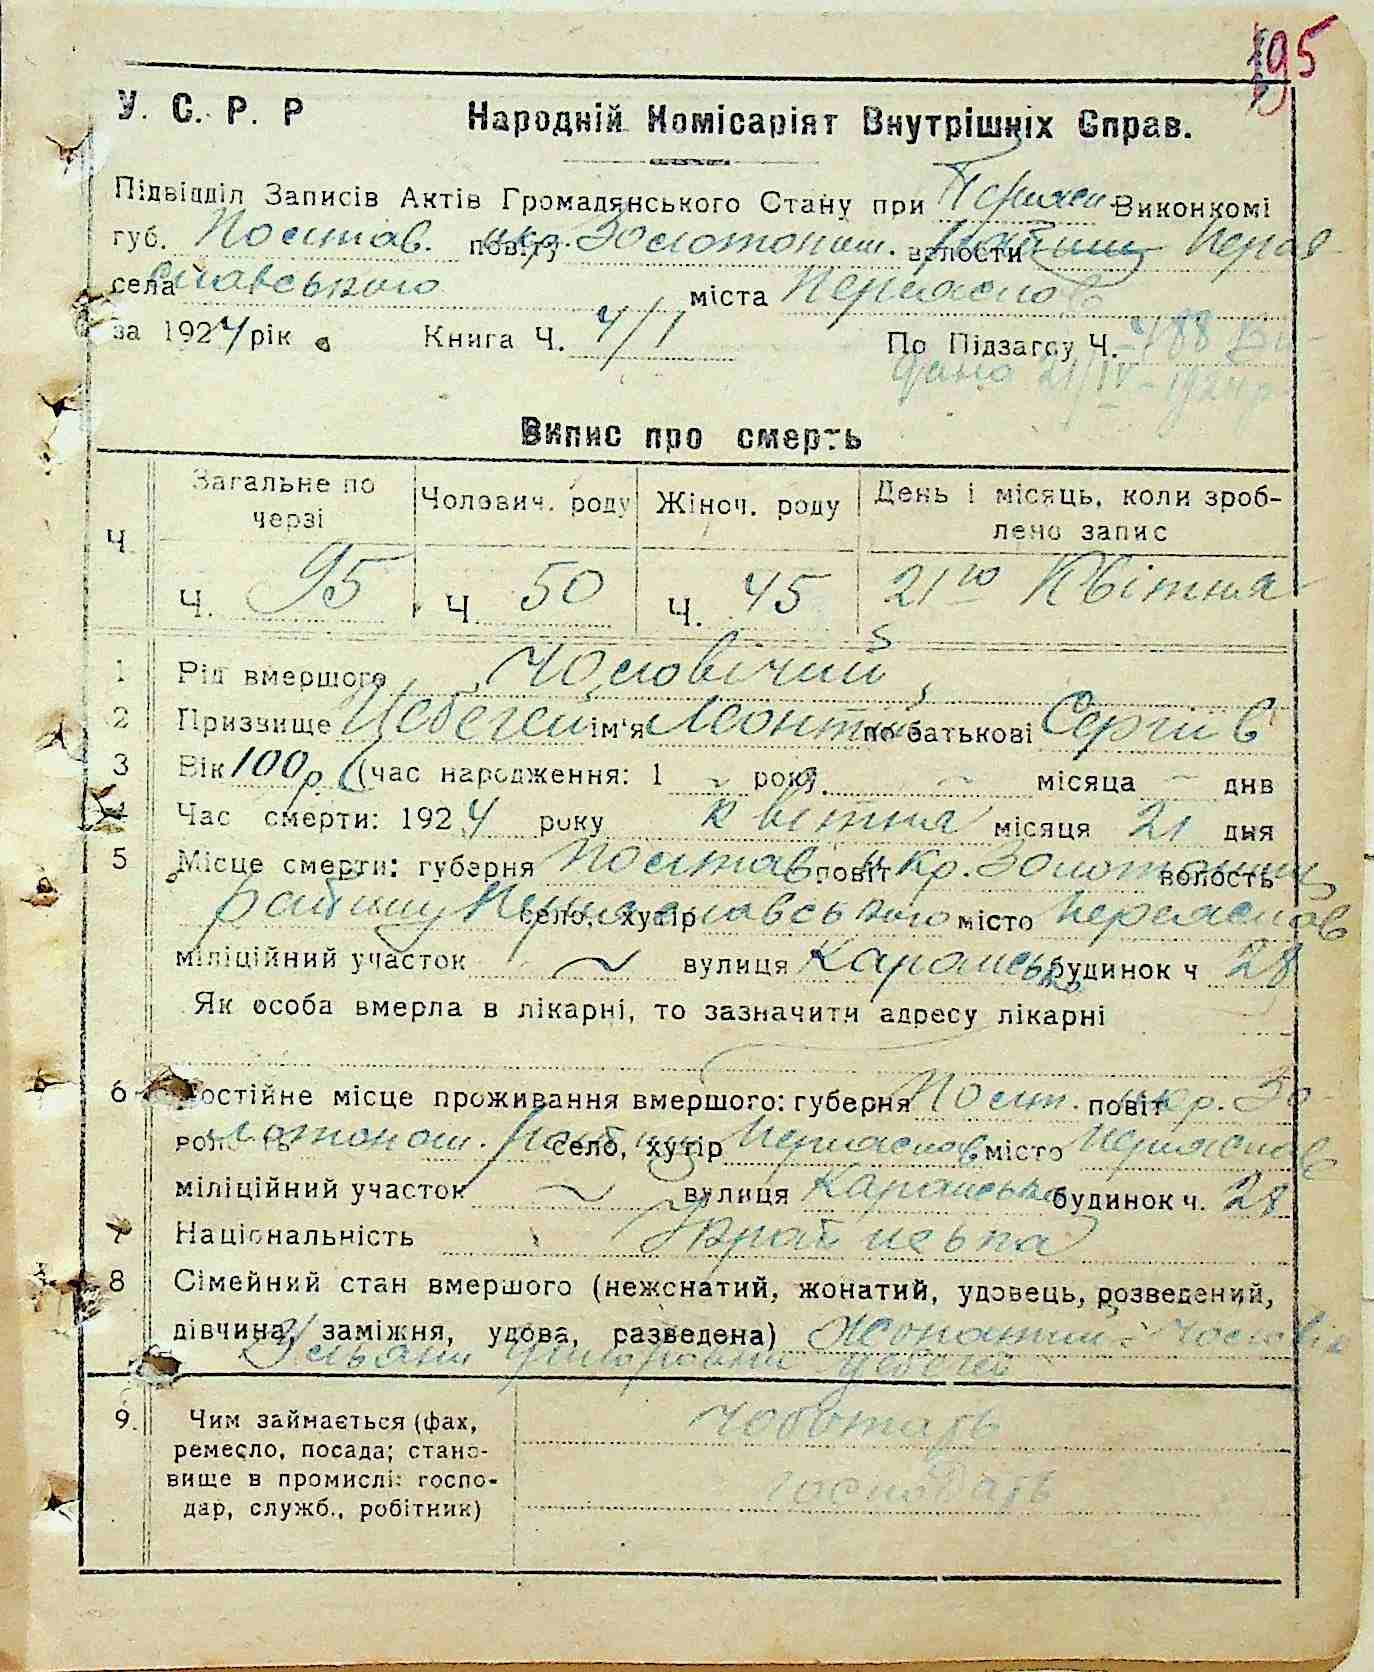 195
У. С. Р. Р Народній Комісаріят Внутрішніх Справ.
Підвідділ Записів Актів Громадянського Стану при Виконкомі
губ. Полтав. повіту окр. Золотонош. волости району Перея
села славського міста Переяслов
за 1924 рік Книга Ч. 4/1 По Підзагсу Ч. 488 Ви-
дано 21/IV-1924 р.
Випис про смерть
Ч Загальне по черзі Чолович. роду Жіноч. роду День і місяць, коли зроб-лено запис
Ч. 95 Ч 50 Ч. 45 21го Квітня
1 Рід вмершого Чоловічий
2 Призвище Цебегей ім'я Леонтій по батькові Сергіів
3 Вік 100 р. (час народження: 1 року місяца днв
4 Час смерти: 1924 року Квітня місяця 21 дня
5 Місце смерти: губерня Полтав повіт окр. Золотонош волость
району Переяславського село, хутір місто Переяслов
міліційний участок вулиця Каранська будинок ч 28
Як особа вмерла в лікарні, то зазначити адресу лікарні
6 Постійне місце проживання вмершого: губерня Полт. повіт окр. Зо-
волость лотонош. район село, хутір Переяслов місто Переяслов
міліційний участок вулиця Каранська будинок ч. 28
7 Національність Украінська
8 Сімейний стан вмершого (нежонатий, жонатий, удовець, розведений,
дівчина, заміжня, удова, разведена) Жонатий - чоловік
Ульяни Цебегей
9. Чим займається (фах, чоботарь
ремесло, посада; стано-
вище в промислі: госпо- господарь
дар, служб., робітник)